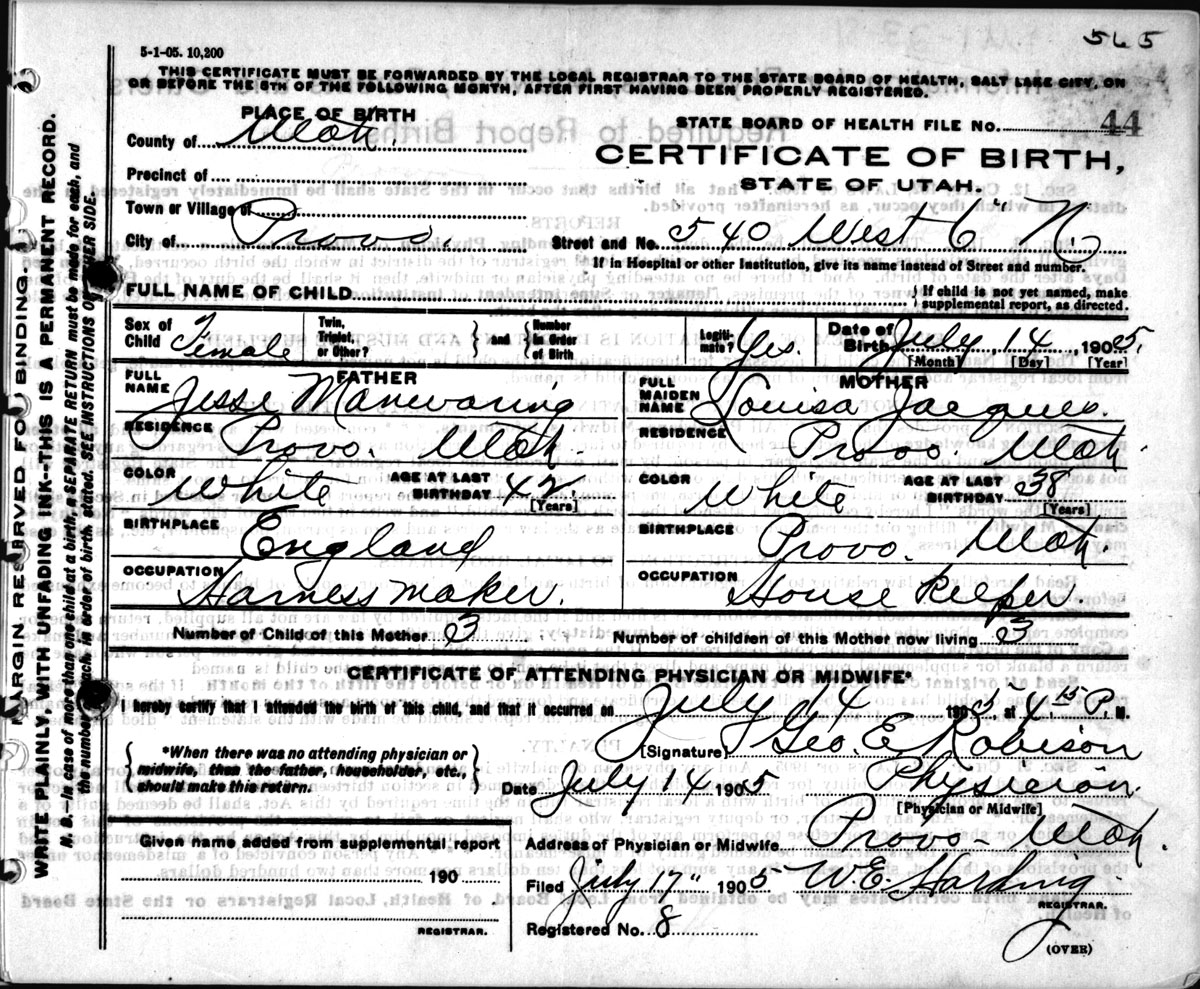 565
5-1-05. 10,200
THIS CERTIFICATE MUST BE FORWARDED BY THE LOCAL REGISTRAR TO THE STATE BOARD OF HEALTH, SALT LAKE CITY, ON
OR BEFORE THE 5TH OF THE FOLLOWING MONTH, AFTER FIRST HAVING BEEN PROPERLY REGISTERED.
PLACE OF BIRTH
County of Utah.
Precinct of
Town or Village of
City of Provo.
STATE BOARD OF HEALTH FILE NO. 44
CERTIFICATE OF BIRTH,
STATE OF UTAH.
Street and No. 540 West 6" N
If in Hospital or other Institution, give its name instead of Street and number.
FULL NAME OF CHILD
If child is not yet named, make
supplemental report, as directed.
Sex of Child Female
Twin, Triplet, or Other?
and
Number in Order of Birth
Legiti-mate? Yes.
Date of Birth July 14 1905.
[Month] [Day] [Year]
FATHER
FULL NAME Jesse Manwaring
RESIDENCE Provo. Utah.
COLOR White AGE AT LAST BIRTHDAY 42
[Years]
BIRTHPLACE England
OCCUPATION Harness maker.
MOTHER
FULL MAIDEN NAME Louisa Jacques.
RESIDENCE Provo. Utah
COLOR White AGE AT LAST BIRTHDAY 38
[Years]
BIRTHPLACE Provo. Utah.
OCCUPATION House Keeper.
Number of Child of this Mother 3
Number of children of this Mother now living 3
CERTIFICATE OF ATTENDING PHYSICIAN OR MIDWIFE*
I hereby certify that I attended the birth of this child, and that it occurred on July 14 1905, at 4 15 P. M.
*When there was no attending physician or
midwife, then the father, householder, etc.,
should make this return.
[Signature] Geo. E. Robison
Date July 14 1905 Physician.
[Physician or Midwife]
Given name added from supplemental report
190
REGISTRAR.
Address of Physician or Midwife Provo - Utah.
Filed July 17" 1905 W. E. Harding
REGISTRAR.
Registered No. 8
(OVER)
MARGIN RESERVED FOR BINDING.
WRITE PLAINLY WITH UNFADING INK--THIS IS A PERMANENT RECORD.
N. B.—In case of more than one child at a birth, a SEPARATE RETURN must be made for each, and
the number of each, in order of birth, stated. SEE INSTRUCTIONS OTHER SIDE.